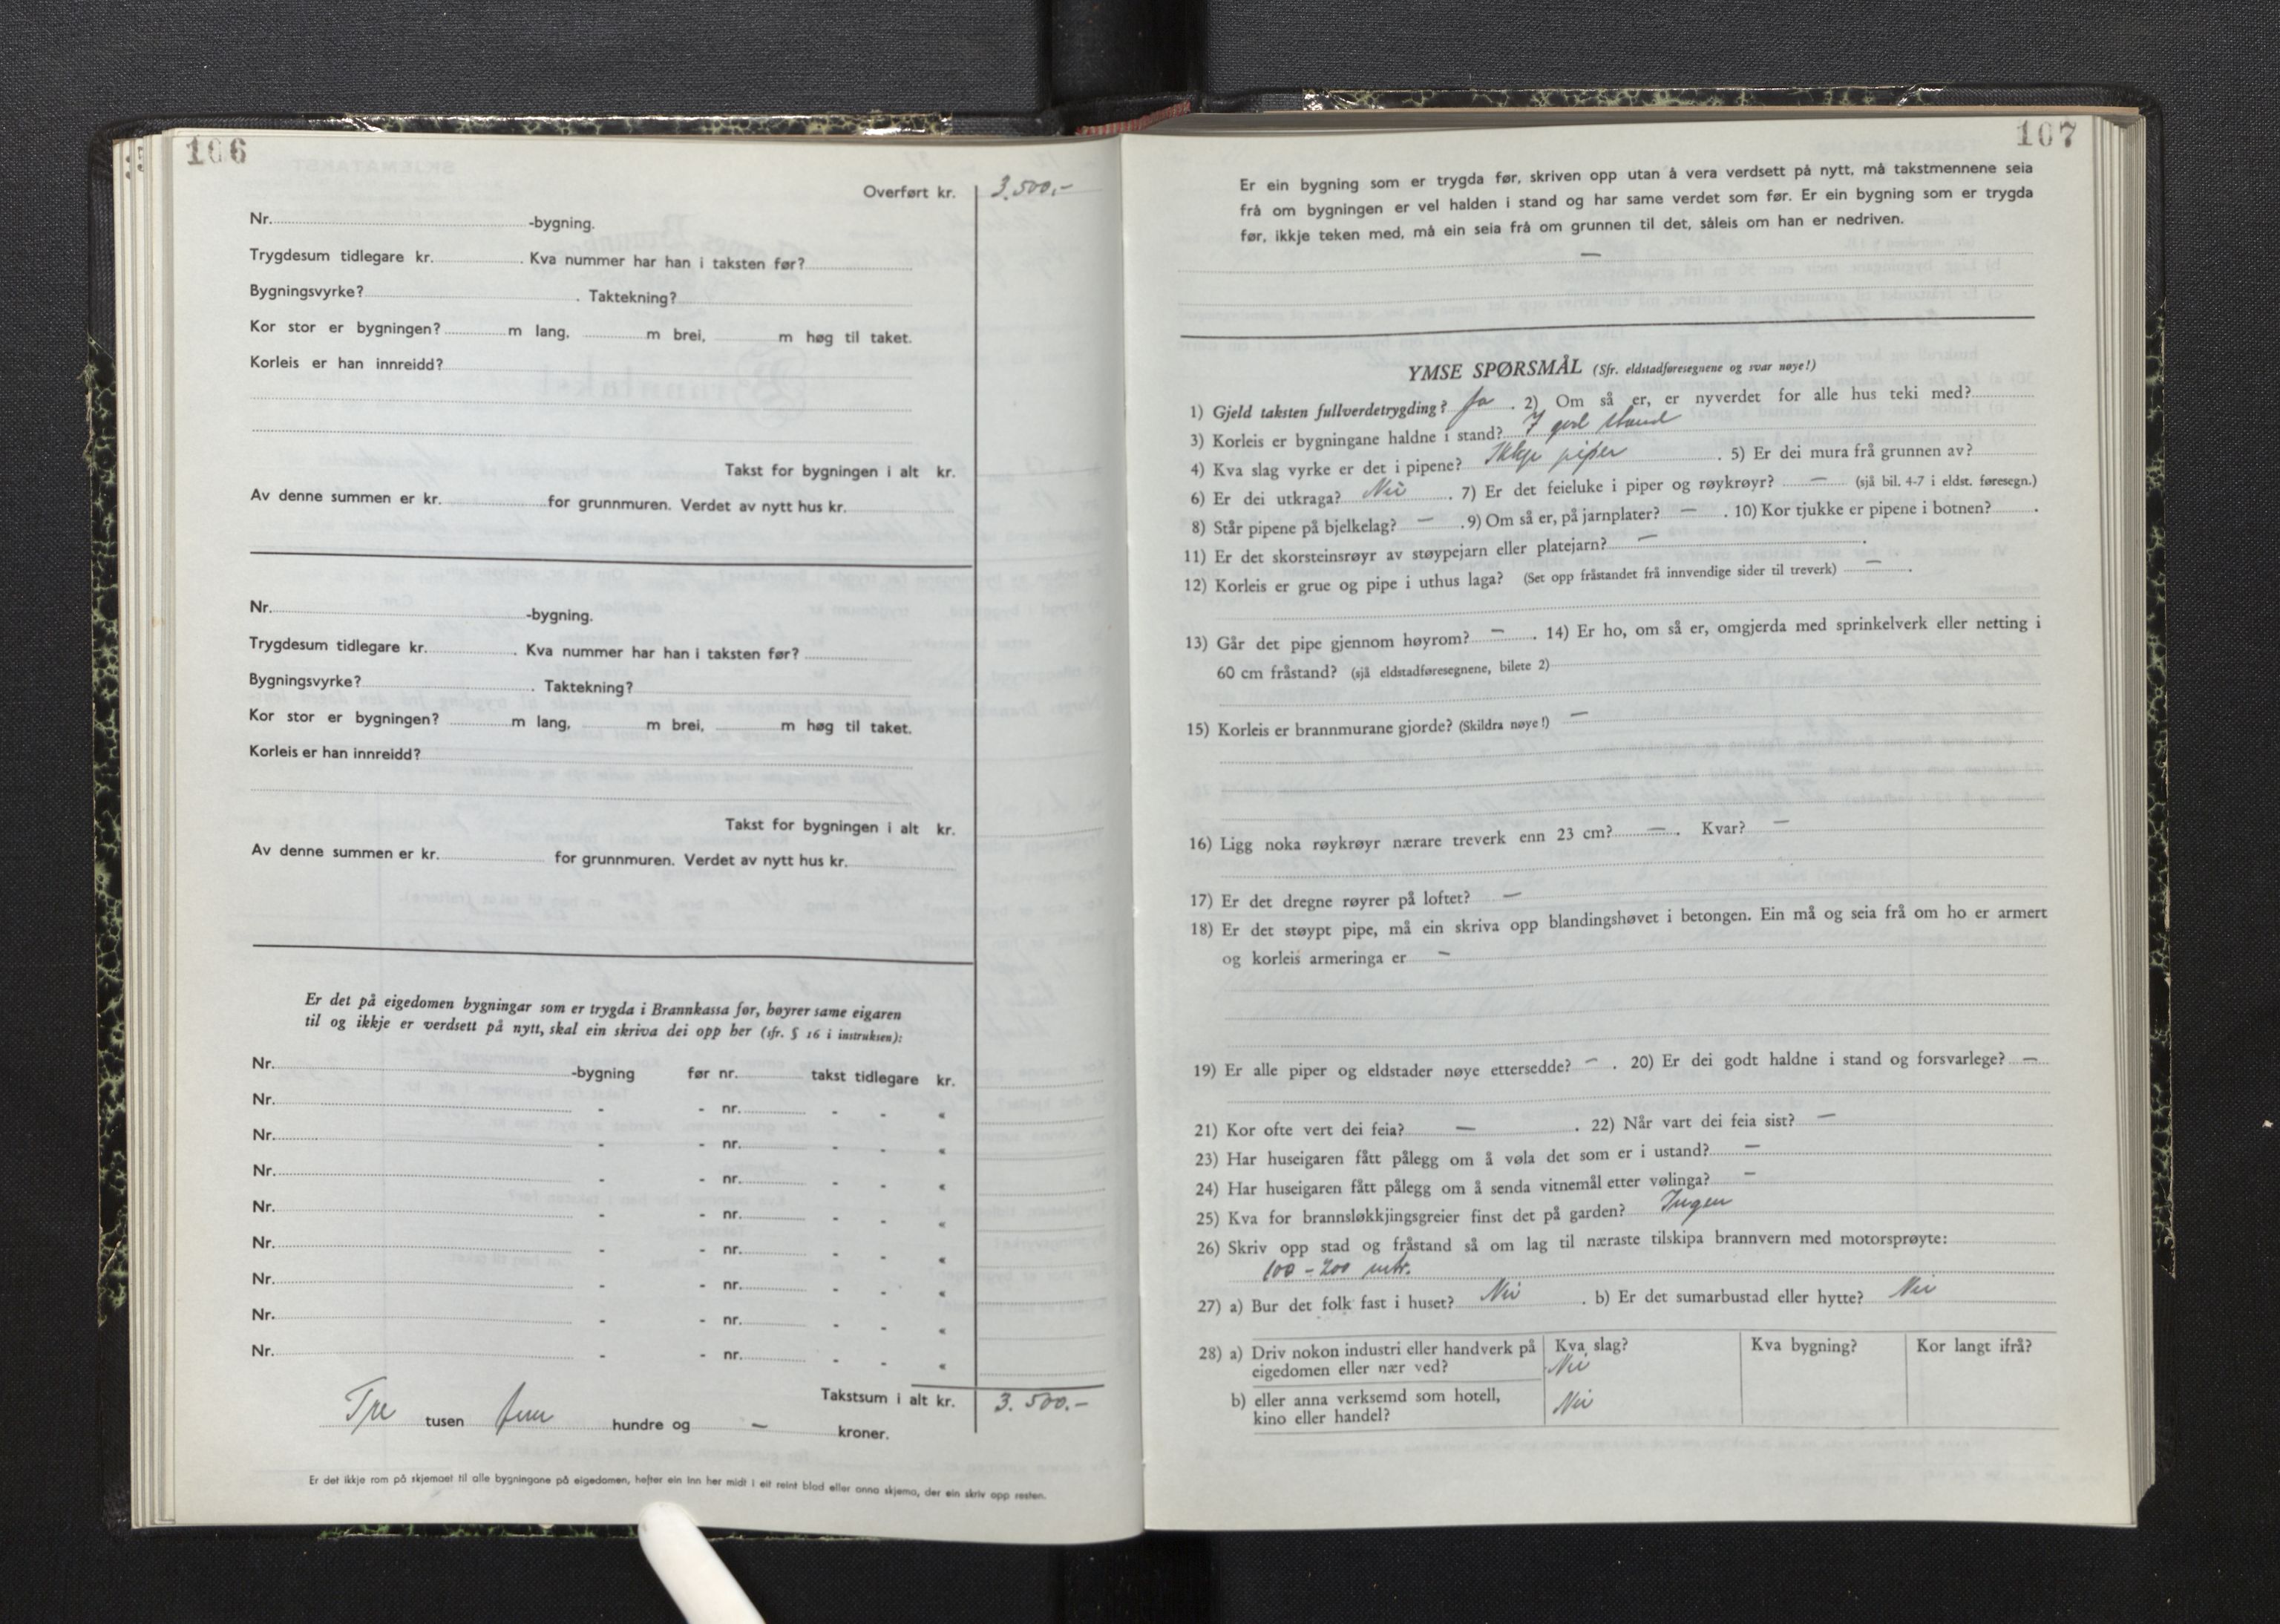 106
Overført kr. 3.500.-
Nr. -bygning.
Trygdesum tidlegare kr. . Kva nummer har han i taksten før?
Bygningsvyrke? . Taktekning?
Kor stor er bygningen? m lang, m brei, m høg til taket.
Korleis er han innreidd?
Takst for bygningen i alt kr.
Av denne summen er kr. for grunnmuren. Verdet av nytt hus kr.
Nr. -bygning.
Trygdesum tidlegare kr. . Kva nummer har han i taksten før?
Bygningsvyrke? . Taktekning?
Kor stor er bygningen? m lang, m brei, m høg til taket.
Korleis er han innreidd?
Takst for bygningen i alt kr.
Av denne summen er kr. for grunnmuren. Verdet av nytt hus kr.
Er det på eigedomen bygningar som er trygda i Brannkassa før, høyrer same eigaren
til og ikkje er verdsett på nytt, skal ein skriva dei opp her (sfr. § 16 i instruksen):
Nr. -bygning før nr. takst tidlegare kr.
Nr. - - nr. - - «
Nr. - - nr. - - «
Nr. - - nr. - - «
Nr. - - nr. - - «
Nr. - - nr. - - «
Nr. - - nr. - - «
Nr. - - nr. - - «
Nr. - - nr. - - «
Takstsum i alt kr. 3.500.-
Tre tusen fem hundre og — kroner.
Er det ikkje rom på skjemaet til alle bygningane på eigedomen, hefter ein inn her midt i eit reint blad eller anna skjema, der ein skriv opp resten.
107
Er ein bygning som er trygda før, skriven opp utan å vera verdsett på nytt, må takstmennene seia
frå om bygningen er vel halden i stand og har same verdet som før. Er ein bygning som er trygda
før, ikkje teken med, må ein seia frå om grunnen til det, såleis om han er nedriven.
—
YMSE SPØRSMÅL (Sfr. eldstadføresegnene og svar nøye!)
1) Gjeld taksten fullverdetrygding? Ja . 2) Om så er, er nyverdet for alle hus teki med?
3) Korleis er bygningane haldne i stand? I god stand
4) Kva slag vyrke er det i pipene? Ikkje piper . 5) Er dei mura frå grunnen av?
6) Er dei utkraga? Nei . 7) Er det feieluke i piper og røykrøyr? — (sjå bil. 4-7 i eldst. føresegn.)
8) Står pipene på bjelkelag? — . 9) Om så er, på jarnplater? — . 10) Kor tjukke er pipene i botnen? .
11) Er det skorsteinsrøyr av støypejarn eller platejarn? — .
12) Korleis er grue og pipe i uthus laga? (Set opp fråstandet frå innvendige sider til treverk) — .
13) Går det pipe gjennom høyrom? — . 14) Er ho, om så er, omgjerda med sprinkelverk eller netting i
60 cm fråstand? (sjå eldstadføresegnene, bilete 2)
15) Korleis er brannmurane gjorde? (Skildra nøye!) —
16) Ligg noka røykrøyr nærare treverk enn 23 cm? — . Kvar? —
17) Er det dregne røyrer på loftet? —
18) Er det støypt pipe, må ein skriva opp blandingshøvet i betongen. Ein må og seia frå om ho er armert
og korleis armeringa er —
19) Er alle piper og eldstader nøye ettersedde? — . 20) Er dei godt haldne i stand og forsvarlege? —
21) Kor ofte vert dei feia? — . 22) Når vart dei feia sist? —
23) Har huseigaren fått pålegg om å vøla det som er i ustand? —
24) Har huseigaren fått pålegg om å senda vitnemål etter vølinga? —
25) Kva for brannsløkkjingsgreier finst det på garden? Ingen
26) Skriv opp stad og fråstand så om lag til næraste tilskipa brannvern med motorsprøyte:
100 - 200 mtr.
27) a) Bur det folk fast i huset? Nei . b) Er det sumarbustad eller hytte? Nei
28) a) Driv nokon industri eller handverk på Kva slag? Kva bygning? Kor langt ifrå?
eigedomen eller nær ved? Nei
b) eller anna verksemd som hotell, Nei
kino eller handel?